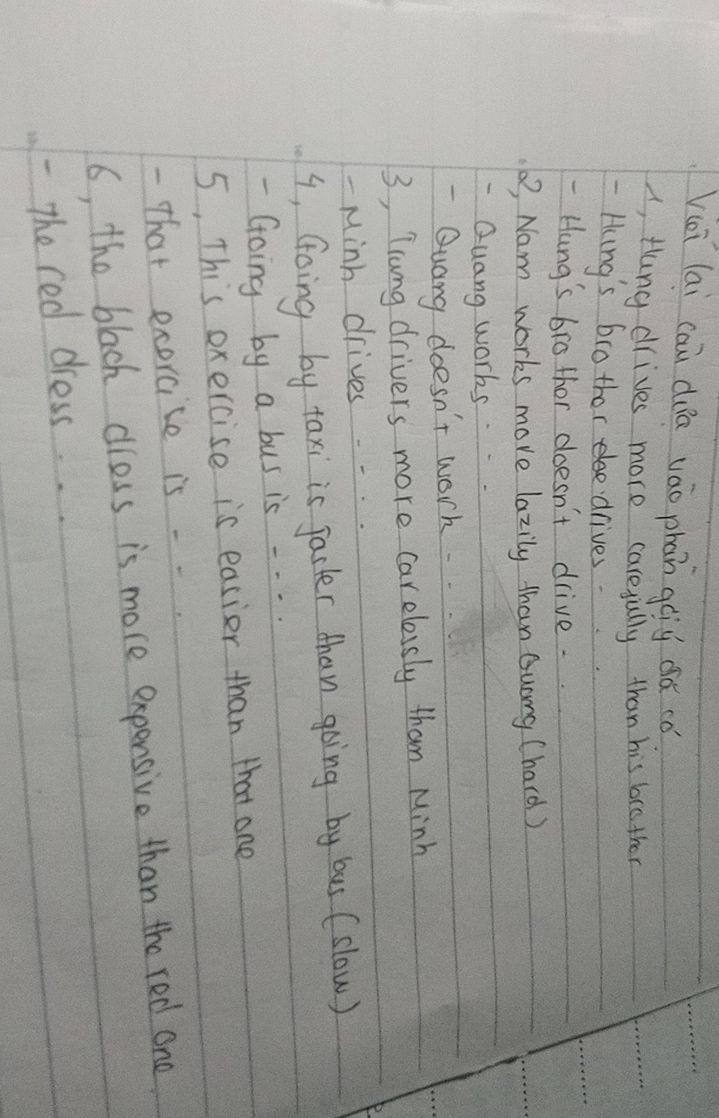 Viết lại câu dựa vào phần gợi ý đã có
1, Hưng drives more carefully than his brother
- Hung's brother drives . . .
- Hung's brother doesn't drive . .
2, Nam works more lazily than Quang (hard)
- Quang works . . .
- Quang doesn't work . . . .
3, Trung drivers more carelessly tham Minh
- Minh drives . . . .
4, Going by taxi is faster than going by bus (slow)
- Going by a bus is . . . .
5, This exercise is easier than that one
- That exercise is . . .
6, the black dress is more expensive than the red one
- The red dress . . . .